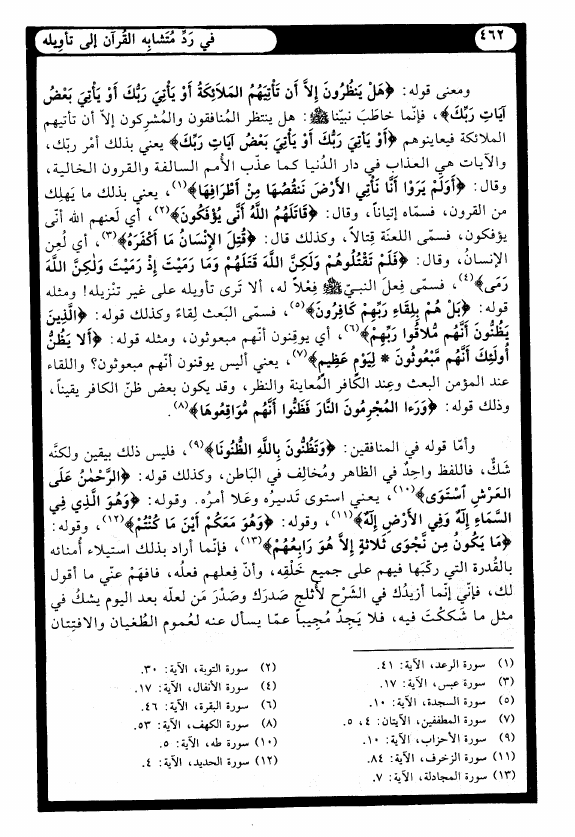 ٤٦٢
في رَدِّ مُتَشابِه القُرآن إلى تَأوِيله
ومعنى قوله: ﴿هَلْ يَنظُرُونَ إِلاَّ أَن تَأْتِيَهُمُ المَلائِكَةُ أَوْ يَأْتِيَ رَبُّكَ أَوْ يَأْتِيَ بَعْضُ
آيَاتِ رَبِّكَ﴾، فإنّما خاطَبَ نبيَّنا ﷺ: هل ينتظر المُنافقون والمُشرِكون إلاّ أن تأتيهم
الملائكة فيعاينوهم ﴿أَوْ يَأْتِيَ رَبُّكَ أَوْ يَأْتِيَ بَعْضُ آيَاتِ رَبِّكَ﴾ يعني بذلك أمْر ربّك،
والآيات هي العذاب في دار الدُنيا كما عذّب الأُمم السالفة والقرون الخالية،
وقال: ﴿أَوَلَمْ يَرَوْا أَنَّا نَأْتِي الأَرْضَ نَنقُصُهَا مِنْ أَطْرَافِهَا﴾(١)، يعني بذلك ما يَهلِك
من القرون، فسمّاه إتياناً، وقال: ﴿قَاتَلَهُمُ اللَّهُ أَنَّى يُؤْفَكُونَ﴾(٢)، أي لَعنهم الله أنّى
يؤفكون، فسمّى اللعنَة قِتالاً، وكذلك قال: ﴿قُتِلَ الإِنْسَانُ مَا أَكْفَرَهُ﴾(٣)، أي لُعِن
الإنسانُ، وقال: ﴿فَلَمْ تَقْتُلُوهُمْ وَلَكِنَّ اللَّهَ قَتَلَهُمْ وَمَا رَمَيْتَ إِذْ رَمَيْتَ وَلَكِنَّ اللَّهَ
رَمَى﴾(٤)، فسمّى فِعلَ النبيّ ﷺ فِعْلاً له، ألا تَرى تأويله على غير تنْزيله! ومثله
قوله: ﴿بَلْ هُمْ بِلِقَاءِ رَبِّهِمْ كَافِرُونَ﴾(٥)، فسمّى البَعث لِقاءً وكذلك قوله: ﴿الَّذِينَ
يَظُنُّونَ أَنَّهُم مُلاقُوا رَبِّهِمْ﴾(٦)، أي يوقِنون أنّهم مبعوثون، ومثله قوله: ﴿أَلا يَظُنُّ
أُولَئِكَ أَنَّهُم مَّبْعُوثُونَ * لِيَوْمٍ عَظِيمٍ﴾(٧)، يعني أليس يوقنون أنّهم مبعوثون؟ واللقاء
عند المؤمن البعث وعِند الكافر المُعاينة والنظر، وقد يكون بعض ظنّ الكافر يقيناً،
وذلك قوله: ﴿وَرَءا المُجْرِمُونَ النَّارَ فَظَنُّوا أَنَّهُم مُوَاقِعُوهَا﴾(٨).
وأمّا قوله في المنافقين: ﴿وَتَظُنُّونَ بِاللَّهِ الظُّنُونَا﴾(٩)، فليس ذلك بيقين ولكنَّه
شَكٌّ، فاللفظ واحِدٌ في الظاهر ومُخالِف في البَاطن، وكذلك قوله: ﴿الرَّحْمٰنُ عَلَى
العَرْشِ اسْتَوَى﴾(١٠)، يعني استوى تَدبيرُه وعَلا أمرُه. وقوله: ﴿وَهُوَ الَّذِي فِي
السَّمَاءِ إِلَهٌ وَفِي الأَرْضِ إِلَهٌ﴾(١١)، وقوله: ﴿وَهُوَ مَعَكُمْ أَيْنَ مَا كُنتُمْ﴾(١٢)، وقوله:
﴿مَا يَكُونُ مِن نَّجْوَى ثَلاثَةٍ إِلاَّ هُوَ رَابِعُهُمْ﴾(١٣)، فإنّما أراد بذلك استيلاء أُمنائه
بالقُدرة التي ركّبَها فيهم على جميع خَلْقِه، وأنّ فِعلهم فعلُه، فافهَمْ عنّي ما أقول
لك، فإنّي إنّما أزيدُك في الشَرْح لأُثلج صَدرَك وصَدْرَ مَن لعلّه بعد اليوم يشكّ في
مثل ما شَككْتَ فيه، فلا يَجِدُ مُجِيباً عمّا يسأل عنه لعُموم الطُغيان والافتِتان
(١) سورة الرعد، الآية: ٤١.
(٢) سورة التوبة، الآية: ٣٠.
(٣) سورة عبس، الآية: ١٧.
(٤) سورة الأنفال، الآية: ١٧.
(٥) سورة السجدة، الآية: ١٠.
(٦) سورة البقرة، الآية: ٤٦.
(٧) سورة المطففين، الآيتان: ٤، ٥.
(٨) سورة الكهف، الآية: ٥٣.
(٩) سورة الأحزاب، الآية: ١٠.
(١٠) سورة طه، الآية: ٥.
(١١) سورة الزخرف، الآية: ٨٤.
(١٢) سورة الحديد، الآية: ٤.
(١٣) سورة المجادلة، الآية: ٧.